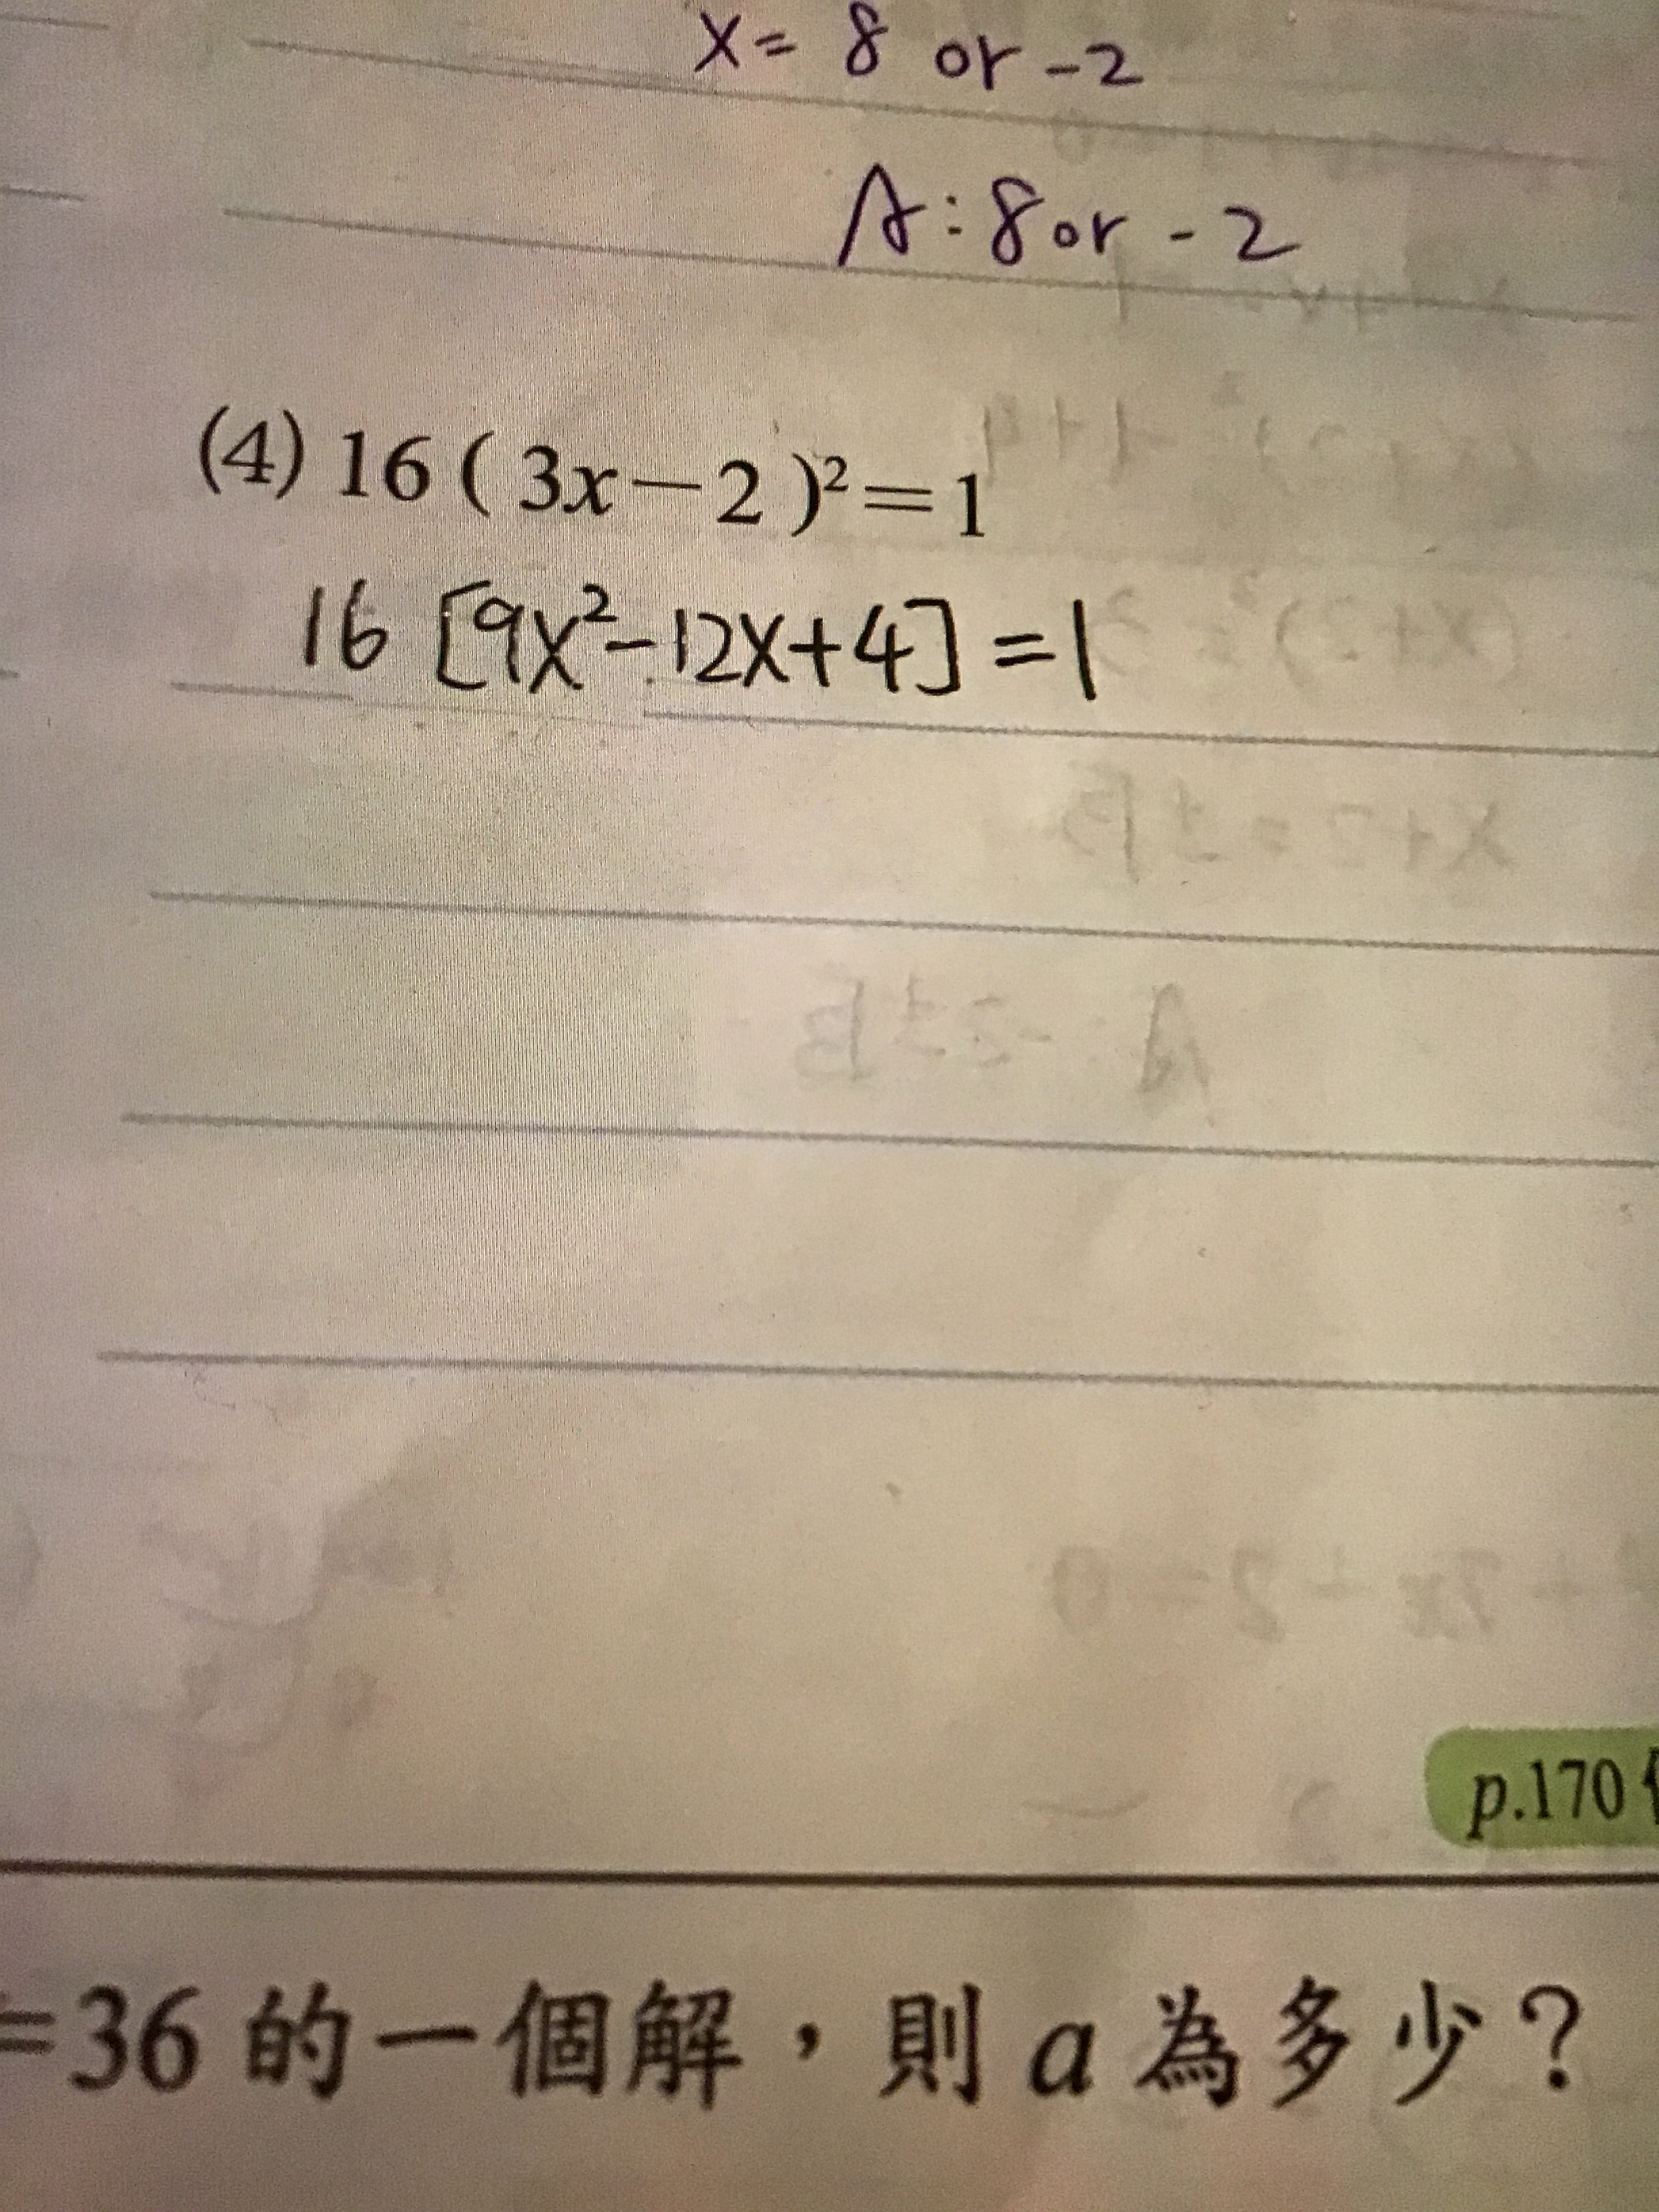 x = 8 or -2
A : 8 or -2
(4) 16 ( 3x－2 )²＝1
16 [9x²-12x+4] = 1
p.170
=36 的一個解，則 a 為多少？